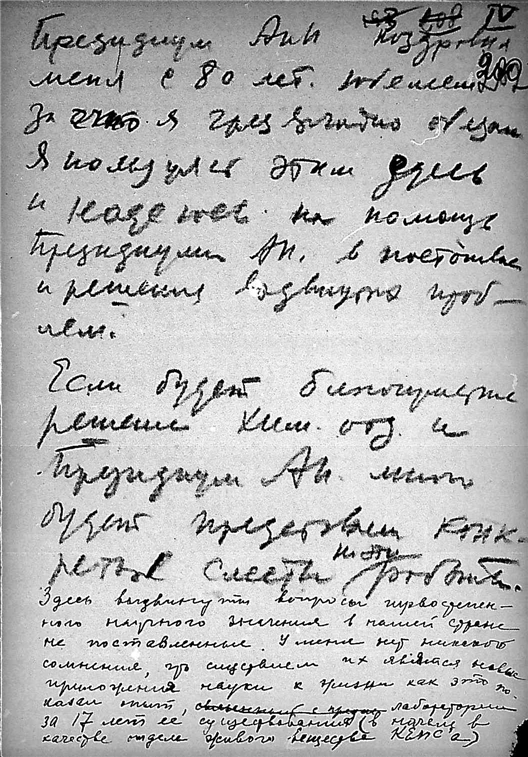 IV
Президиум АН поздравил
меня с 80 лет. юбилеем 292
за что я чрезвычайно обязан
Я пользуюсь этим здесь
и надеюсь на помощь
Президиума АН. в постановке
и решения выдвинутых проб-
лем.
Если будет благоприятное
решение Хим. отд. и
Президиум АН. мною
будет представлен конк-
ретные сметы на эти работы.
Здесь выдвинуты вопросы первостепен-
ного научного значения в нашей стране
не поставленные. У меня нет никакого
сомнения, что следствием их явятся новые
приложения науки к жизни как это по-
казал опыт, лаборатории
за 17 лет ее существования (в начале в
качестве отдела живого вещества КЕПС'а)